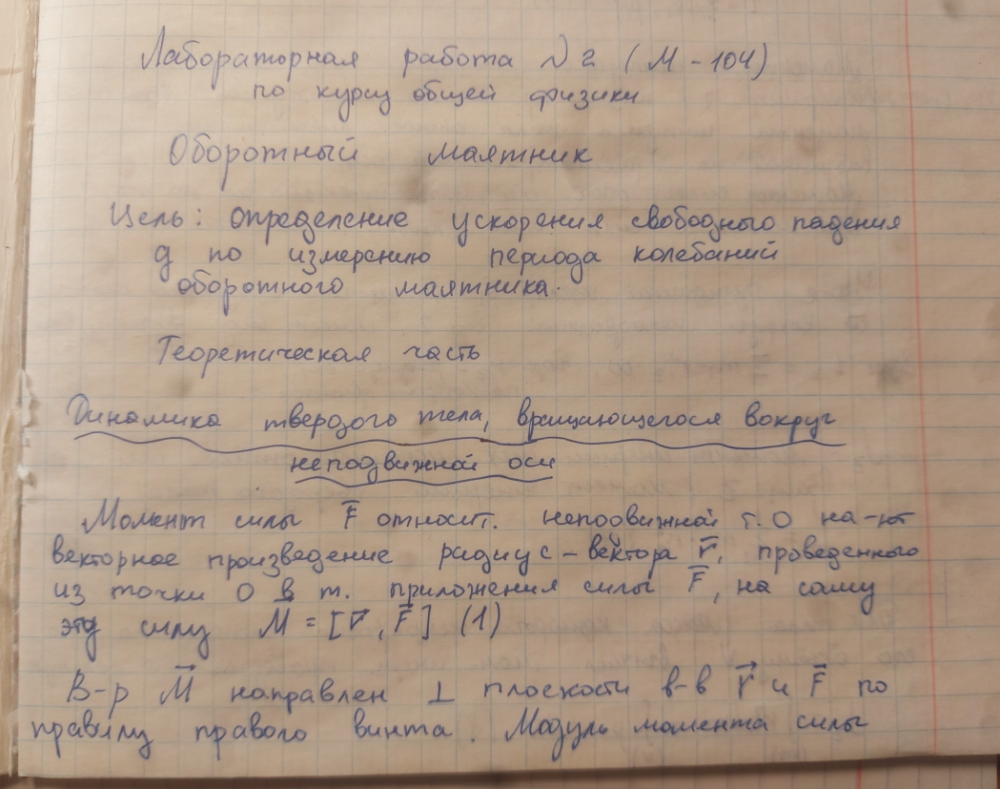 Лабораторная работа №2 (М-104)
по курсу общей физики
Оборотный маятник
Цель: определение ускорения свободного падения
g по измерению периода колебаний
оборотного маятника.
Теоретическая часть
Динамика твердого тела, вращающегося вокруг
неподвижной оси
Момент силы F̅ относит. неподвижной т. О на-ют
векторное произведение радиус-вектора r̅, проведенного
из точки О в т. приложения силы F̅, на саму
эту силу M = [r̅, F̅] (1)
В-р M⃗ направлен ⊥ плоскости в-в r⃗ и F̅ по
правилу правого винта. Модуль момента силы